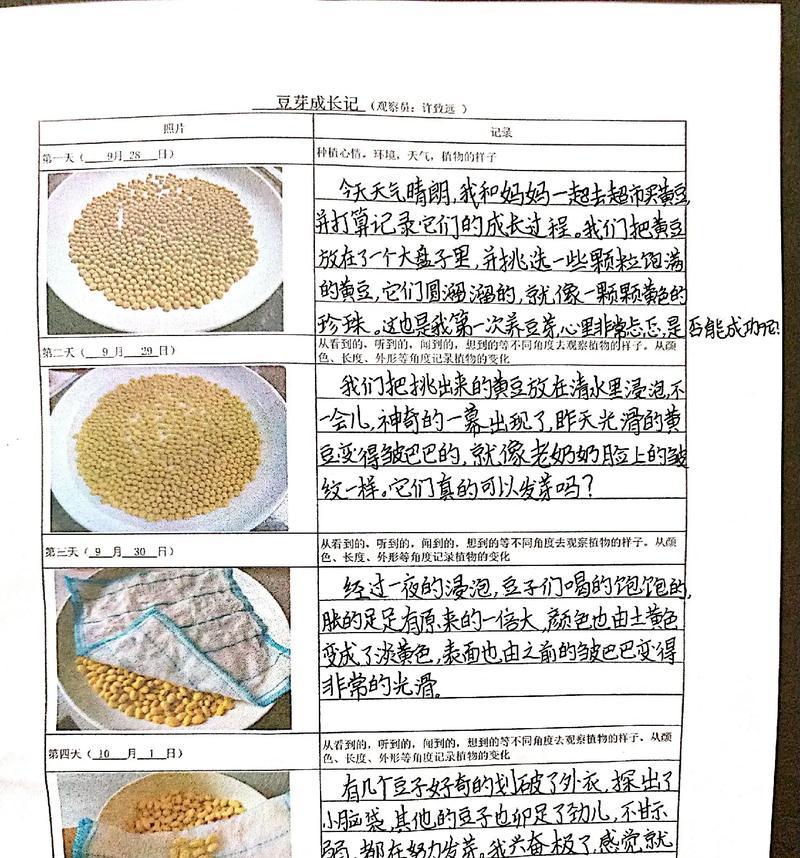 豆芽成长记 (观察员：许致远 )
照片
记录
第一天 ( 9月 28 日)
种植心情，环境，天气，植物的样子
今天天气晴朗，我和妈妈一起去超市买黄豆，
并打算记录它们的成长过程。我们把黄豆
放在了一个大盘子里，并挑选一些颗粒饱满
的黄豆，它们圆溜溜的，就像一颗颗黄色的
珍珠。这也是我第一次养豆芽，心里非常忐忑，是否能成功呢？
第二天 ( 9 月 29 日)
从看到的，听到的，闻到的，想到的等不同角度去观察植物的样子。从颜
色、长度、外形等角度记录植物的变化
我们把挑出来的黄豆放在清水里浸泡，不
一会儿，神奇的一幕出现了，昨天光滑的黄
豆变得皱巴巴的，就像老奶奶脸上的皱
纹一样。它们真的可以发芽吗？
第三天 ( 9 月 30 日)
从看到的，听到的，闻到的，想到的等不同角度去观察植物的样子。从颜
色、长度、外形等角度记录植物的变化
经过一夜的浸泡，豆子们喝的饱饱的，
胀的足足有原来的一倍大，颜色也由土黄色
变成了淡黄色，表面也由之前的皱巴巴变得
非常的光滑。
第四天 ( 10 月 1 日)
从看到的，听到的，闻到的，想到的等不同角度去观察植物的样子。从颜
色、长度、外形等角度记录植物的变化
有几个豆子好奇的划破了外衣，探出了
小脑袋，其他的豆子也卯足了劲儿，不甘示
弱，都在努力发芽。我兴奋极了，感觉就